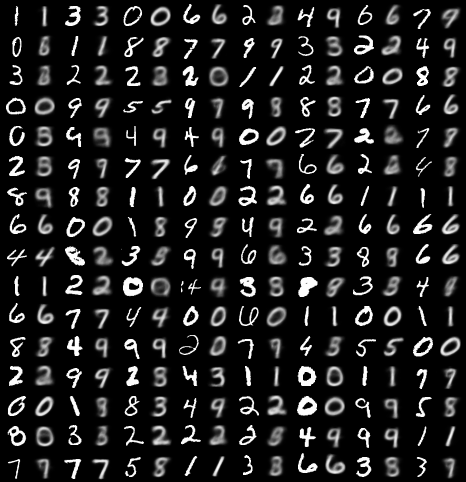 1 1 3 3 0 0 6 6 2 8 4 9 6 6 7 9
0 6 1 1 8 8 7 7 9 9 3 3 2 2 4 9
3 8 2 2 2 8 2 0 1 1 2 2 0 0 8 8
0 0 9 9 5 5 9 9 9 8 8 8 7 7 6 6
0 8 9 4 9 4 9 0 0 7 7 2 7 9
2 8 9 9 7 7 6 6 7 9 6 6 2 8 4 8
8 9 8 8 1 1 0 0 2 2 6 6 1 1 1 1
6 6 0 0 1 8 9 8 4 9 2 2 6 6 6 6
4 4 8 2 3 8 9 9 6 6 3 3 8 9 6 6
1 1 2 2 0 0 4 9 3 8 8 8 3 3 4 9
6 6 7 7 4 4 0 0 6 0 1 1 0 0 1 1
8 8 4 9 9 9 2 0 7 9 4 5 5 5 0 0
2 2 9 9 2 8 4 3 1 1 0 0 1 1 7 9
0 0 1 8 8 3 4 9 2 2 0 0 9 9 5 8
8 0 3 3 2 2 2 2 2 8 4 9 9 9 1 1
7 9 7 7 5 8 1 1 3 8 6 6 3 8 3 9